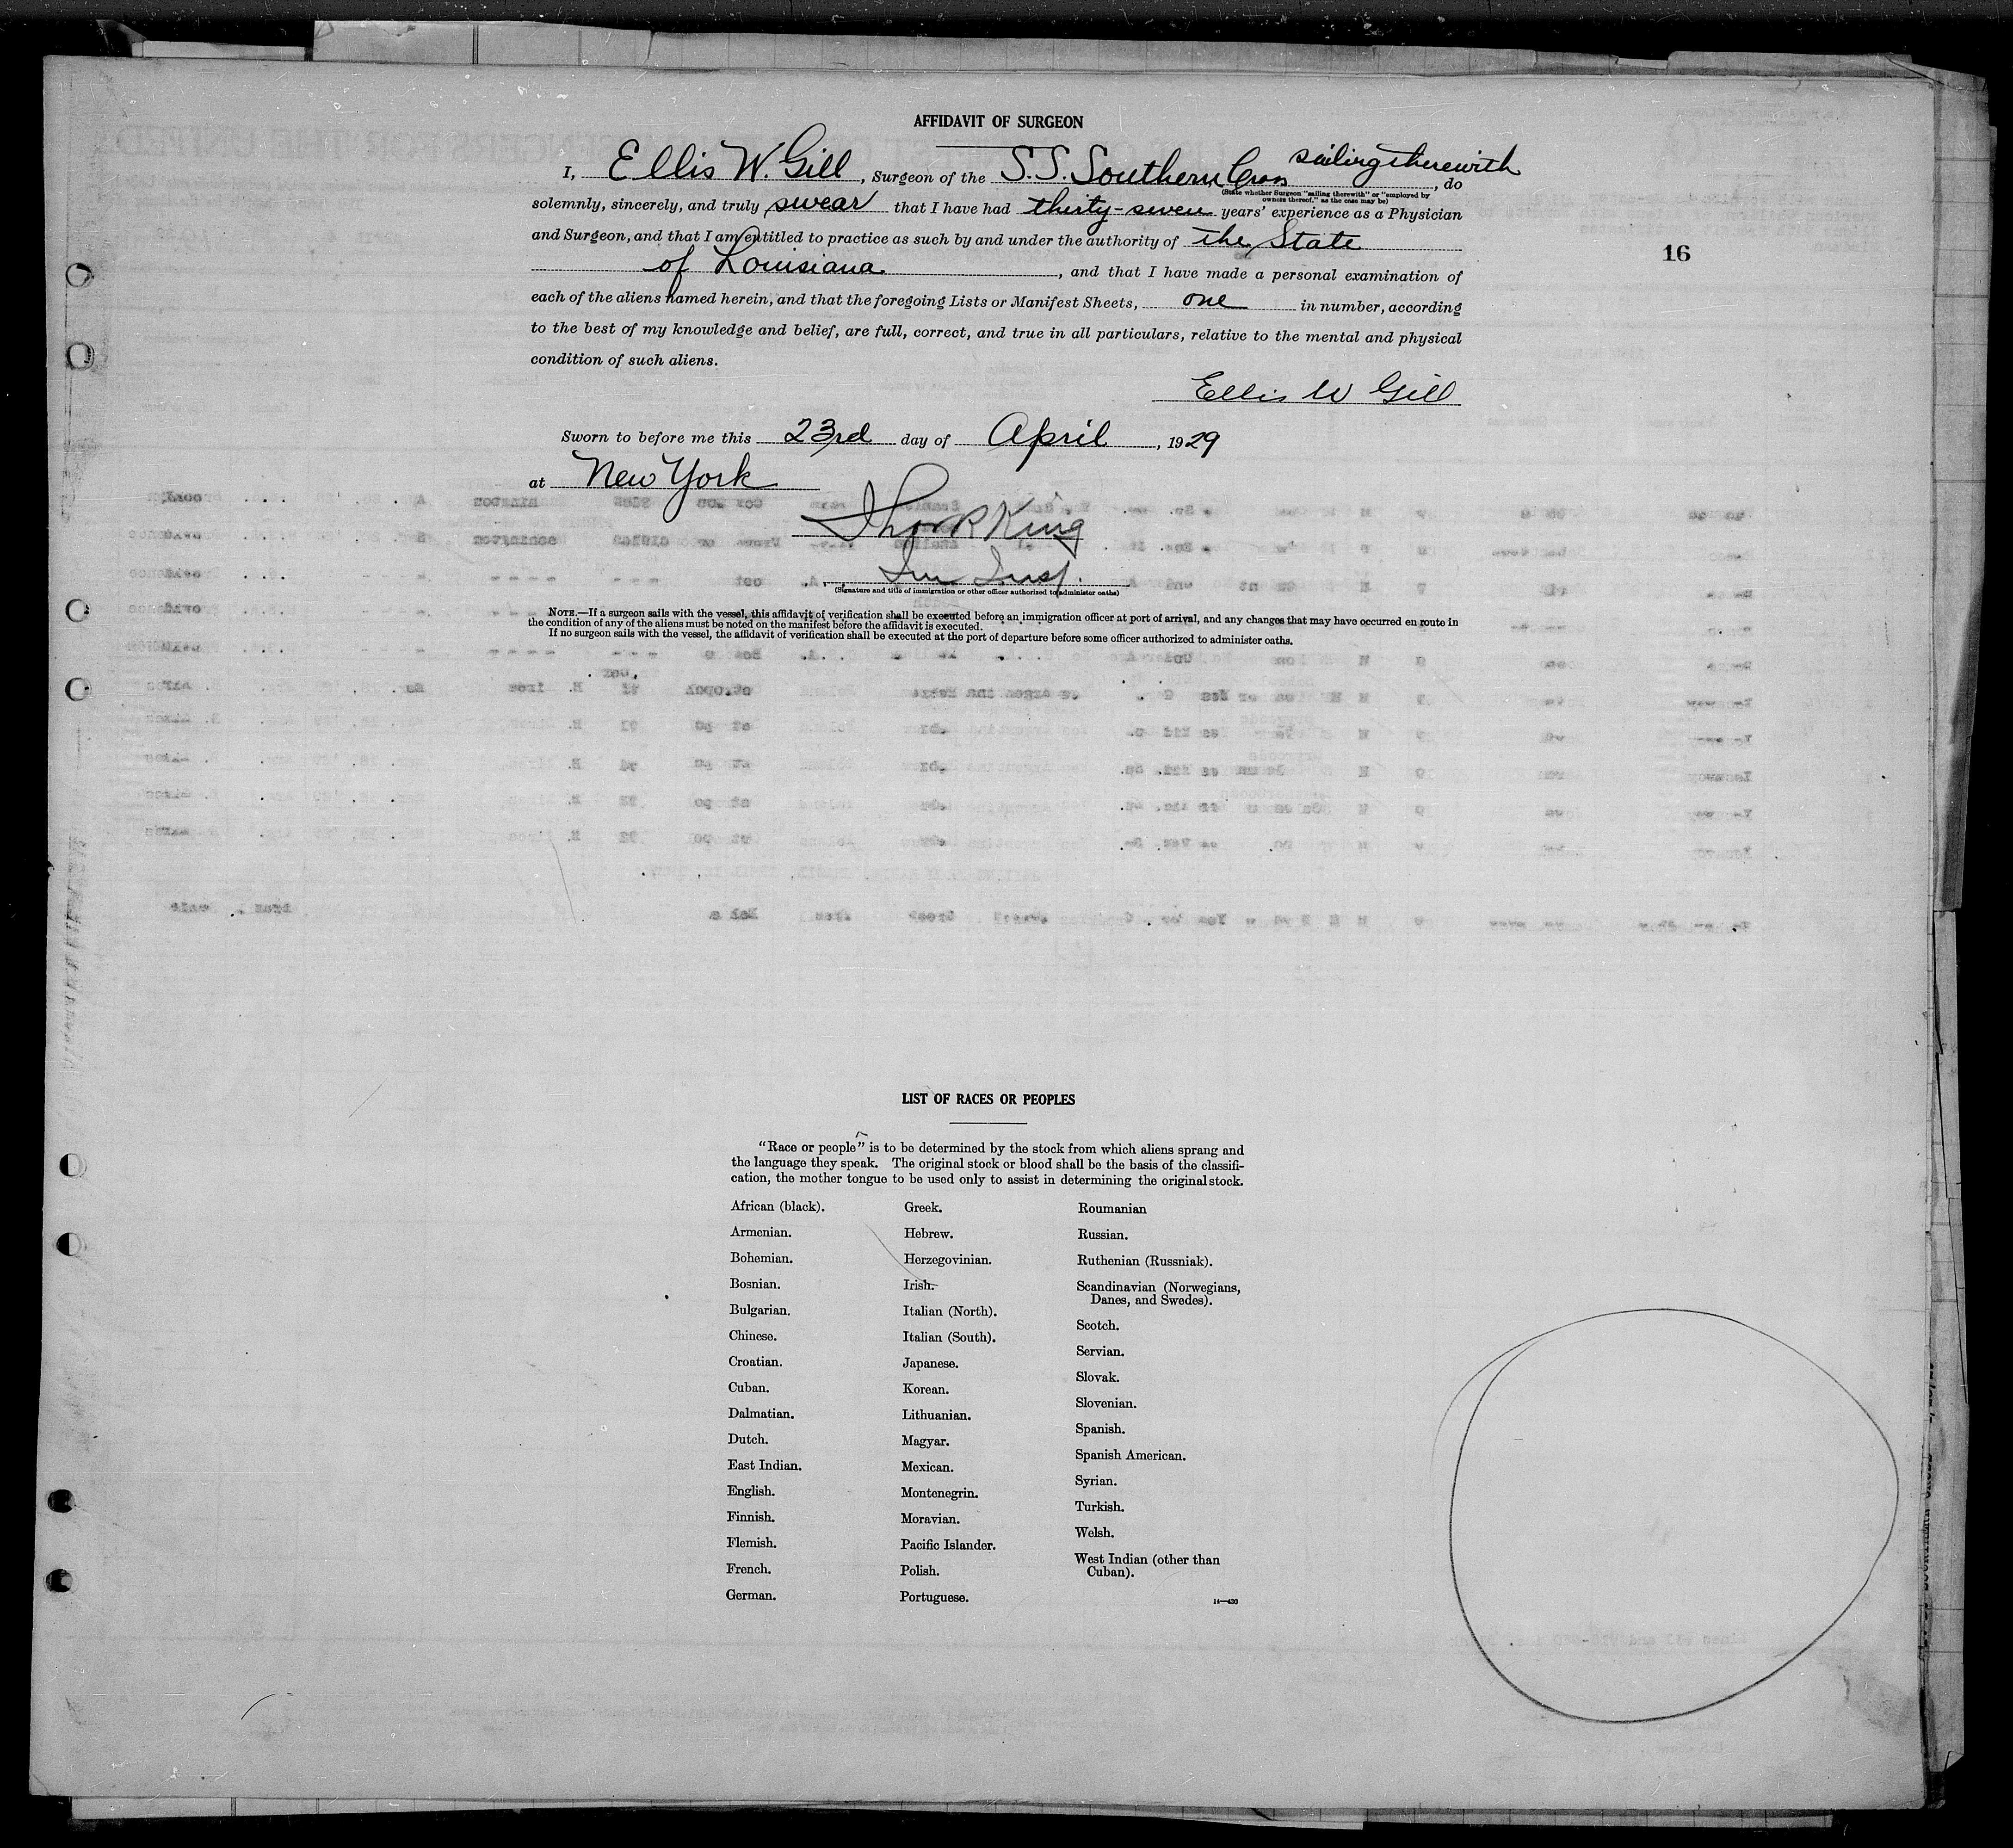 AFFIDAVIT OF SURGEON
I, Ellis W. Gill, Surgeon of the S.S. Southern Cross sailing therewith, do
(State whether Surgeon "sailing therewith" or "employed by
owners thereof," as the case may be)
solemnly, sincerely, and truly swear that I have had thirty-seven years' experience as a Physician
and Surgeon, and that I am entitled to practice as such by and under the authority of the State
of Louisiana, and that I have made a personal examination of
16
each of the aliens named herein, and that the foregoing Lists or Manifest Sheets, one in number, according
to the best of my knowledge and belief, are full, correct, and true in all particulars, relative to the mental and physical
condition of such aliens.
Ellis W Gill
Sworn to before me this 23rd day of April, 1929
at New York
King
Imm Insp.
(Signature and title of immigration or other officer authorized to administer oaths)
NOTE.—If a surgeon sails with the vessel, this affidavit of verification shall be executed before an immigration officer at port of arrival, and any changes that may have occurred en route in
the condition of any of the aliens must be noted on the manifest before the affidavit is executed.
If no surgeon sails with the vessel, the affidavit of verification shall be executed at the port of departure before some officer authorized to administer oaths.
LIST OF RACES OR PEOPLES
"Race or people" is to be determined by the stock from which aliens sprang and
the language they speak. The original stock or blood shall be the basis of the classifi-
cation, the mother tongue to be used only to assist in determining the original stock.
African (black).
Armenian.
Bohemian.
Bosnian.
Bulgarian.
Chinese.
Croatian.
Cuban.
Dalmatian.
Dutch.
East Indian.
English.
Finnish.
Flemish.
French.
German.
Greek.
Hebrew.
Herzegovinian.
Irish.
Italian (North).
Italian (South).
Japanese.
Korean.
Lithuanian.
Magyar.
Mexican.
Montenegrin.
Moravian.
Pacific Islander.
Polish.
Portuguese.
Roumanian
Russian.
Ruthenian (Russniak).
Scandinavian (Norwegians,
Danes, and Swedes).
Scotch.
Servian.
Slovak.
Slovenian.
Spanish.
Spanish American.
Syrian.
Turkish.
Welsh.
West Indian (other than
Cuban).
14—430